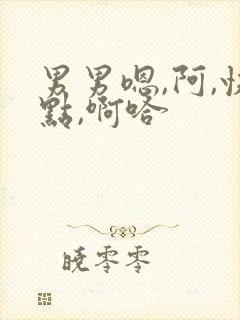 男男嗯,阿,快
點,啊哈
曉零零